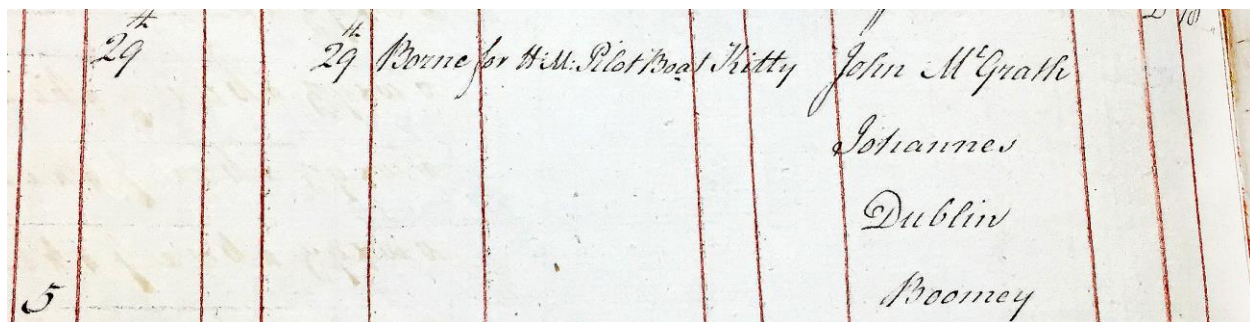 29th 29th Borne for H:M: Pilot Boat Kitty John McGrath
Johannes
Dublin
5 Boomey